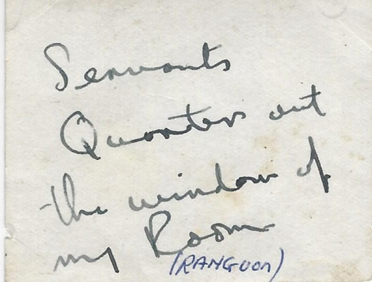 Servants
Quarters out
the window of
my Room
(RANGOON)